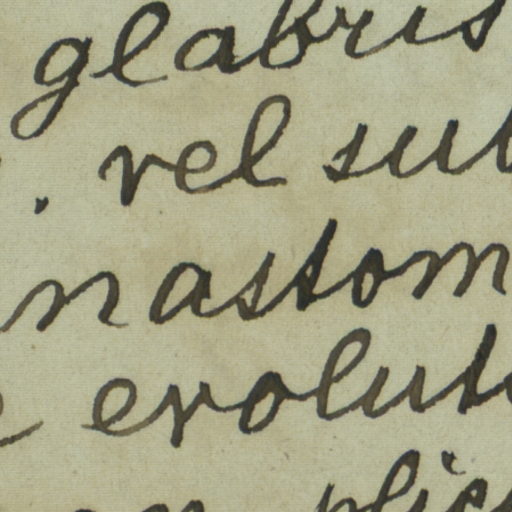 glabris
. vel sub
n astom
evolut
plic